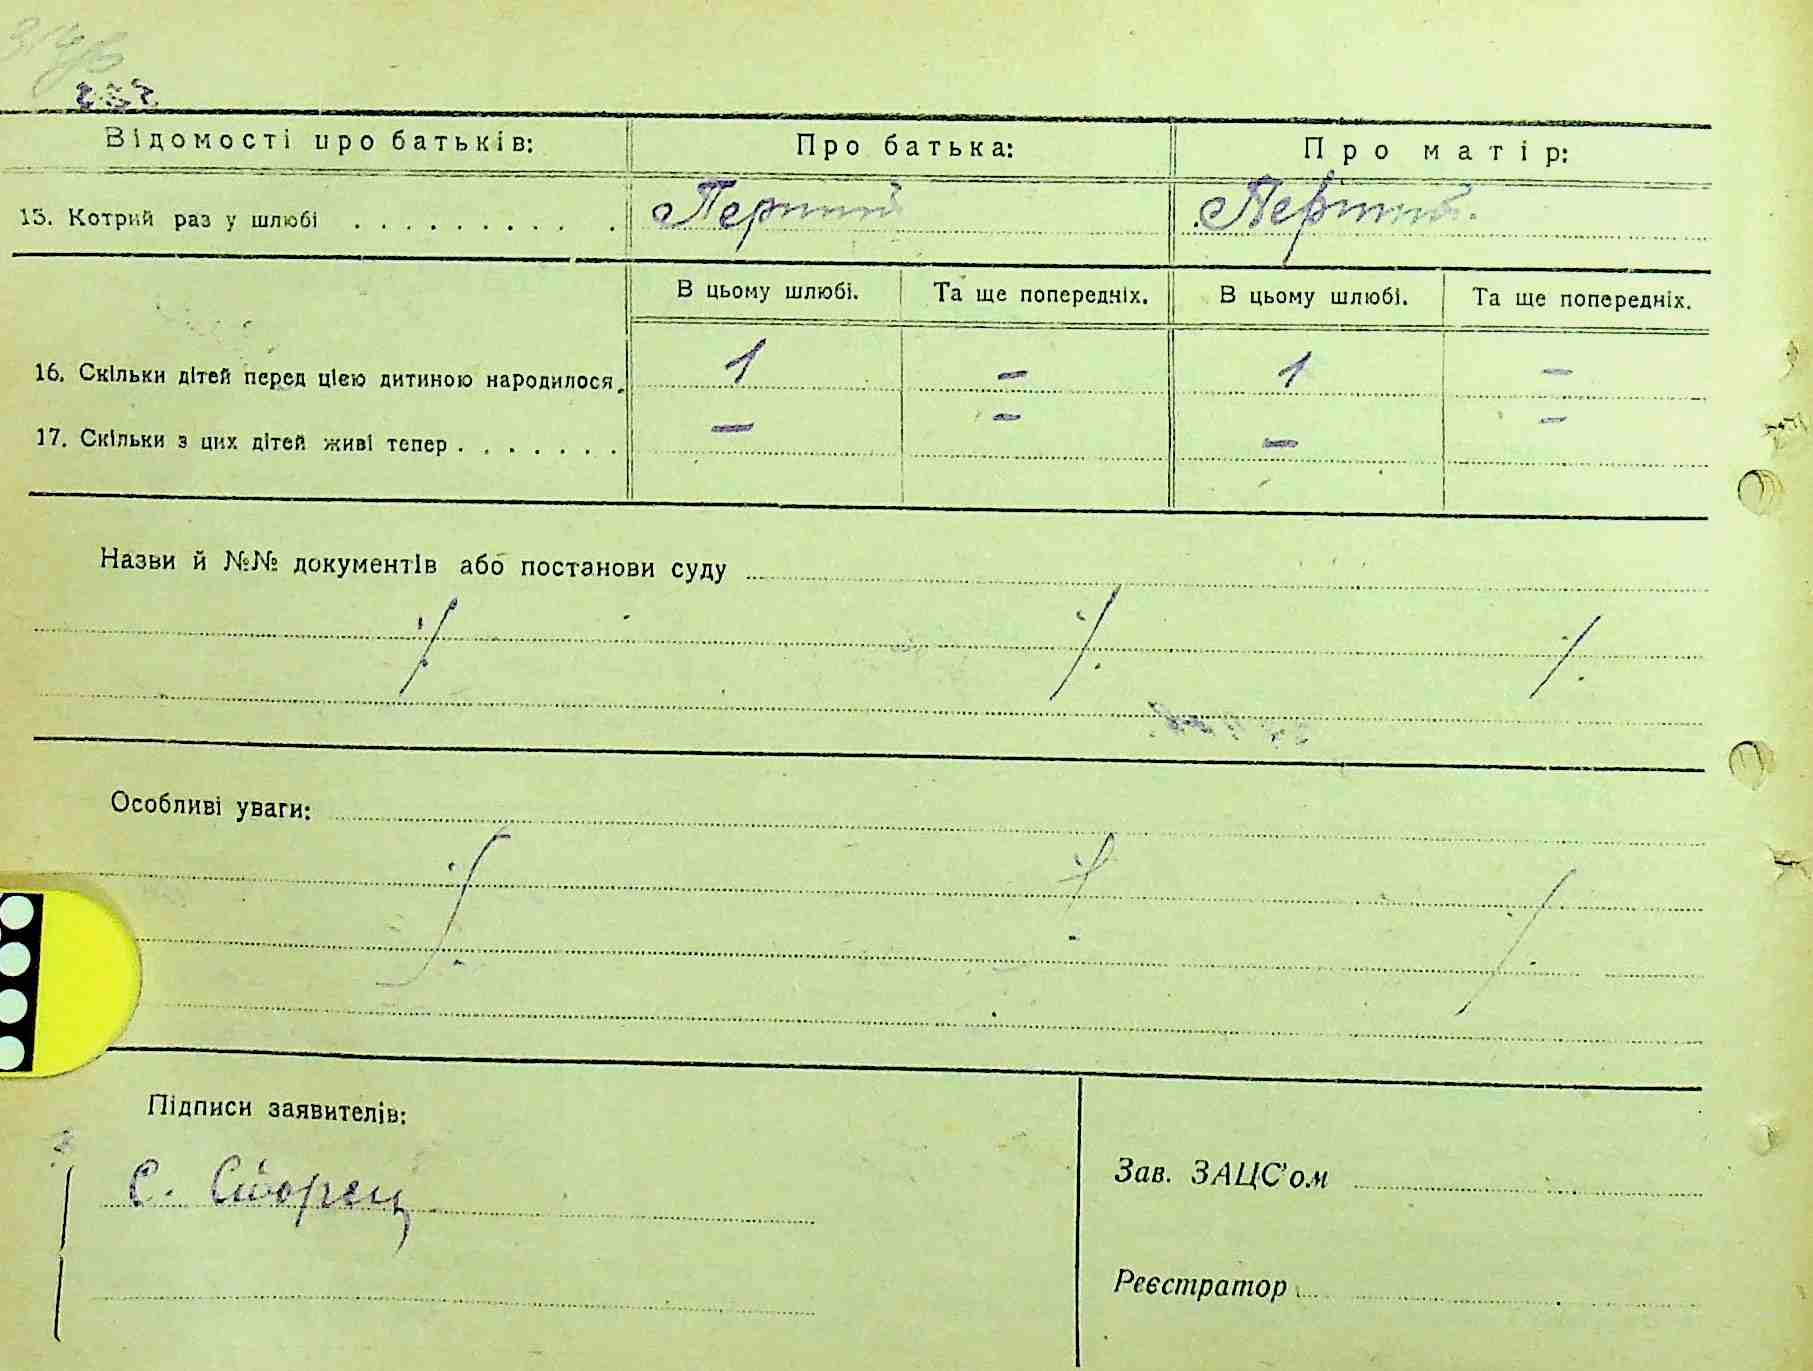 Відомості про батьків: Про батька: Про матір:
15. Котрий раз у шлюбі . . . . . . . . . . . Перший Перший.
В цьому шлюбі. Та ще попередніх. В цьому шлюбі. Та ще попередніх.
16. Скільки дітей перед цією дитиною народилося. 1 – 1 –
17. Скільки з цих дітей живі тепер . . . . . . . – – – –
Назви й №№ документів або постанови суду
Особливі уваги:
Підписи заявителів:
Зав. ЗАЦС'ом
С.
Реєстратор